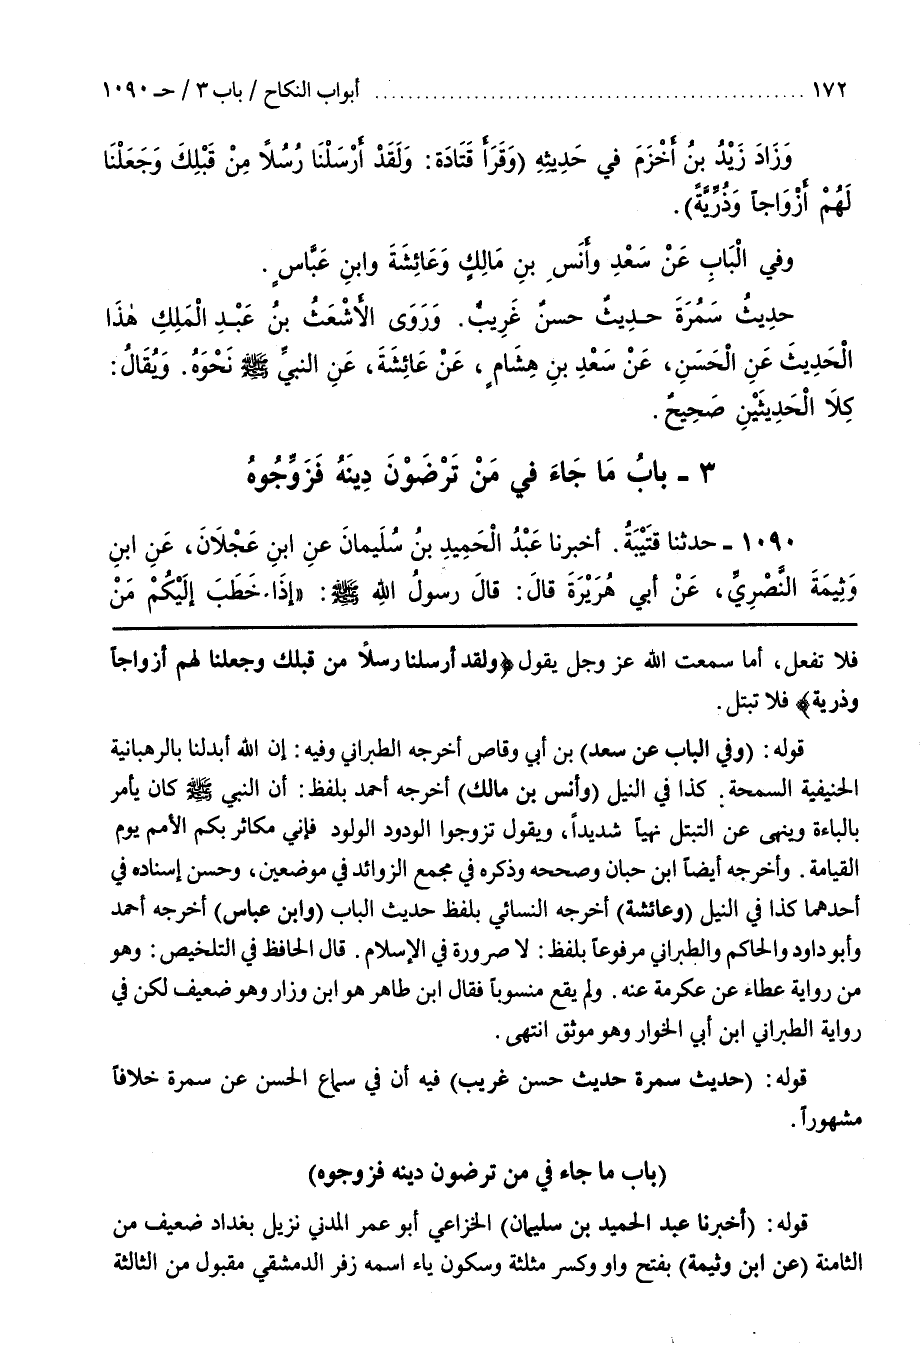 ١٧٢ ........................................ أبواب النكاح / باب ٣ / حـ ١٠٩٠
وَزَادَ زَيْدُ بنُ أَخْزَمَ في حَدِيثِهِ (وَقَرَأَ قَتَادَة: وَلَقَدْ أَرْسَلْنَا رُسُلًا مِنْ قَبْلِكَ وَجَعَلْنَا
لَهُمْ أَزْوَاجاً وَذُرِّيَّةً).
وفي الْبَابِ عَنْ سَعْدِ وأَنَسِ بنِ مَالِكٍ وَعَائِشَةَ وابنِ عَبَّاسٍ.
حدِيثُ سَمُرَةَ حـدِيثٌ حسنٌ غَرِيبٌ. وَرَوَى الأَشْعَثُ بنُ عَبْـدِ الْمَلِكِ هٰذَا
الْحَدِيثَ عَنِ الْحَسَنِ، عَنْ سَعْدِ بنِ هِشَامٍ، عَنْ عَائِشَةَ، عَنِ النبيِّ ﷺ نَحْوَهُ. وَيُقَالُ:
كِلَا الْحَدِيثَيْنِ صَحِيحٌ.
٣ - بابُ مَا جَاءَ في مَنْ تَرْضَوْنَ دِينَهُ فَزَوِّجُوهُ
١٠٩٠ - حدثنا قتَيْبَةُ. أخبرنا عَبْدُ الْحَمِيدِ بنُ سُلَيمانَ عنِ ابنِ عَجْلَانَ، عَنِ ابنِ
وَثِيمَةَ النَّصْرِيِّ، عَنْ أبي هُرَيْرَةَ قالَ: قالَ رسولُ اللهِ ﷺ: «إذَا خَطَبَ إلَيْكُمْ مَنْ
فلا تفعل، أما سمعت الله عز وجل يقول ﴿ولقد أرسلنا رسلاً من قبلك وجعلنا لهم أزواجاً
وذرية﴾ فلا تبتل.
قوله: (وفي الباب عن سعد) بن أبي وقاص أخرجه الطبراني وفيه: إن الله أبدلنا بالرهبانية
الحنيفية السمحة. كذا في النيل (وأنس بن مالك) أخرجه أحمد بلفظ: أن النبي ﷺ كان يأمر
بالباءة وينهى عن التبتل نهياً شديداً، ويقول تزوجوا الودود الولود فإني مكاثر بكم الأمم يوم
القيامة. وأخرجه أيضاً ابن حبان وصححه وذكره في مجمع الزوائد في موضعين، وحسن إسناده في
أحدهما كذا في النيل (وعائشة) أخرجه النسائي بلفظ حديث الباب (وابن عباس) أخرجه أحمد
وأبو داود والحاكم والطبراني مرفوعاً بلفظ: لا صرورة في الإسلام. قال الحافظ في التلخيص: وهو
من رواية عطاء عن عكرمة عنه. ولم يقع منسوباً فقال ابن طاهر هو ابن وزار وهو ضعيف لكن في
رواية الطبراني ابن أبي الخوار وهو موثق انتهى.
قوله: (حديث سمرة حديث حسن غريب) فيه أن في سماع الحسن عن سمرة خلافاً
مشهوراً.
(باب ما جاء في من ترضون دينه فزوجوه)
قوله: (أخبرنا عبد الحميد بن سليمان) الخزاعي أبو عمر المدني نزيل بغداد ضعيف من
الثامنة (عن ابن وثيمة) بفتح واو وكسر مثلثة وسكون ياء اسمه زفر الدمشقي مقبول من الثالثة